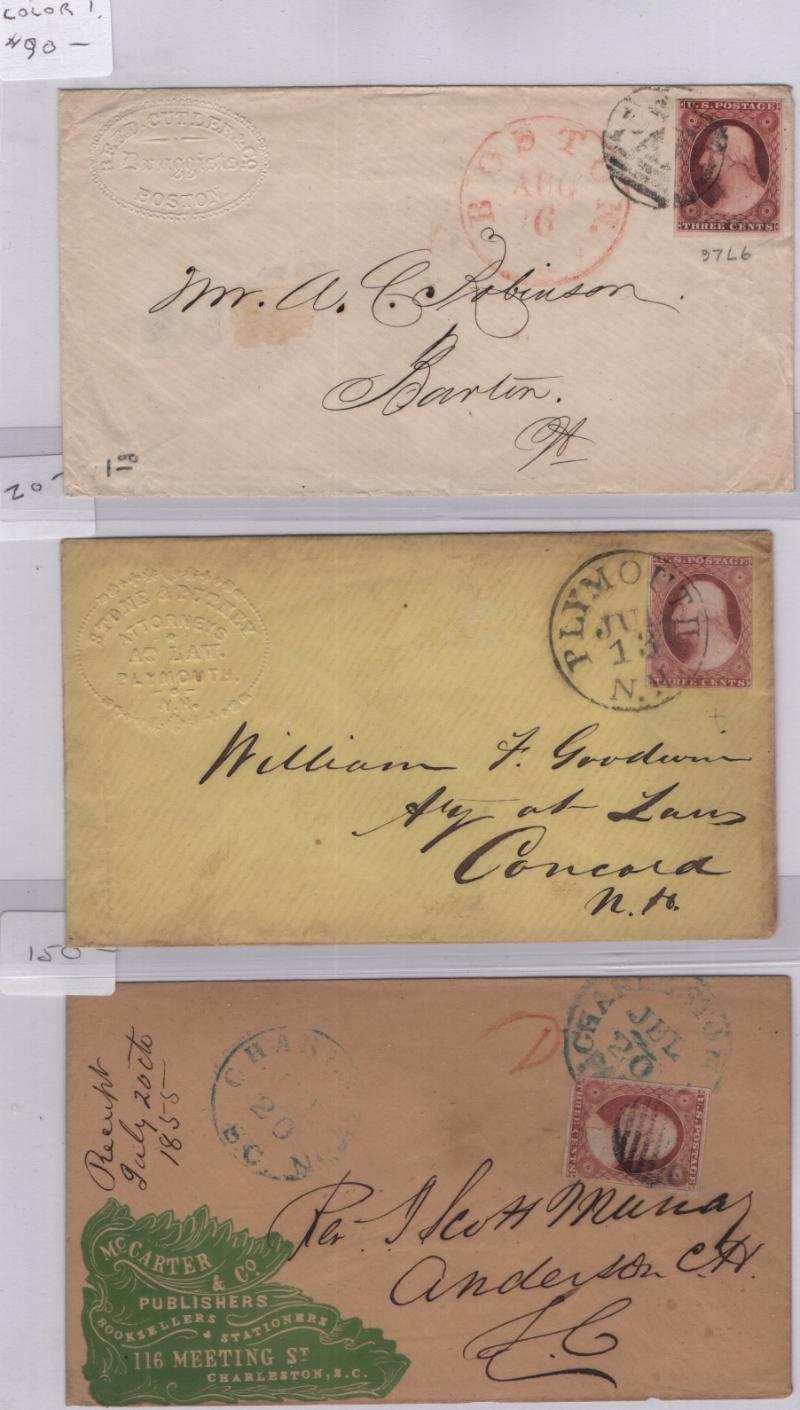 COLOR!
#90-
REED, CUTLER & CO
Druggists
BOSTON.
BOSTON.
AUG
PAID
U.S. POSTAGE
THREE CENTS
37L6
Mr. A. C. Robinson.
Barton.
Vt
20-
STONE &
ATTORNEYS
AT LAW.
PLYMOUTH.
N.H.
PLYMOUTH
JUL
13
N.H
U.S. POSTAGE
THREE CENTS
William F. Goodwin
Aty at Law
Concord
N.H.
150-
Receipt
July 20th
1855
CHARLESTON
20
SO
CHARLESTON
JUL
20
U.S. POSTAGE
THREE CENTS
Rev J Scott Murray
Anderson C.H.
S.C
McCARTER
& Co
PUBLISHERS
BOOKSELLERS & STATIONERS
116 MEETING ST
CHARLESTON, S.C.